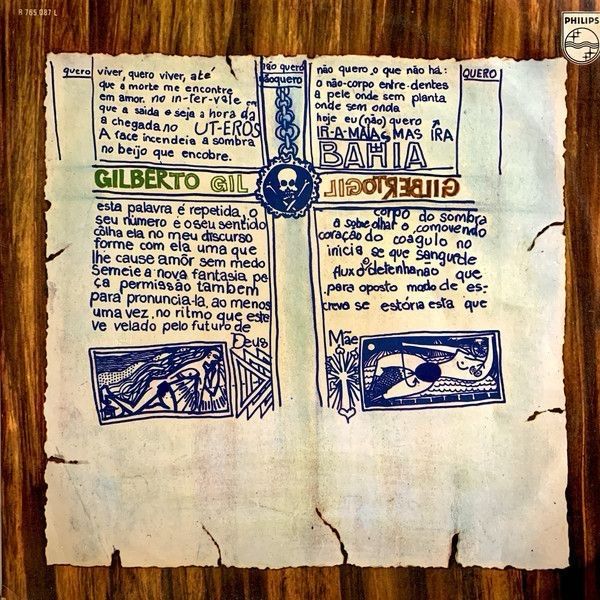 R 765 087 L
PHILIPS
quero
viver, quero viver, até
que a morte me encontre
em amor. no in-ter-vale em
que a saida e seja a hora da
a chegada no UT-EROS
A face incendeia a sombra
no beijo que encobre.
não quero
nãoquero
não quero o que não há:
o não-corpo entre-dentes
a pele onde sem planta
onde sem onda
hoje eu (não) quero
IR-A-MAIAS MAS IRA
BAHIA
QUERO
GILBERTO GIL
GILBERTOGIL
esta palavra é repetida, o
seu número é o seu sentido
côlha ela no meu discurso
forme com ela uma que
lhe cause amôr sem medo
Semeie a nova fantasia pe
ça permissão tambem
para pronuncia-la, ao menos
uma vez, no ritmo que este
ve velado pelo futuro de
Deus
corpo do sombra
a sobre olhar o comovendo
coração do coagulo no
inicia se que sangunde
fluxo detenha não que
para oposto modo de es-
creva se estória esta que
Mãe